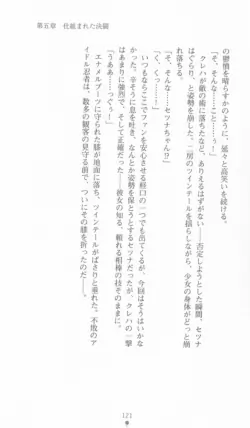 第五章　仕組まれた決闘
の鬱憤を晴らすかのように、延々と高笑いを続ける。
「くっ……」
「セ、セツナちゃん!?」
クレハが敵の術に落ちたなど、ありえるはずがない――否定しようとした瞬間、セツナ
はぐらり、と姿勢を崩した。二房のツインテールを揺らしながら、少女の身体が
崩れ落ちる。
「あ……つっぐぅ……！」
いつもならここでファンを安心させる軽口の一つでも出てくるが、今回はそうはいかな
い。辛そうに息を吐き、なんとか姿勢を保とうとするセツナだったが、クレハの一撃
はあまりに強烈で、そして正確だった――彼女の知る、頼れる相棒の技そのままに。
エナメルブーツに守られた膝が地面に落ち、ツインテールがばさりと垂れた。不敗のア
イドル忍者は、数多の観客の見守る前で、ついにその膝を折ったのだ――。
121